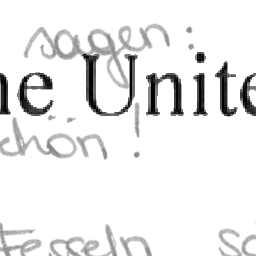 sagen:
ne Unite
chön!
fesseln sc